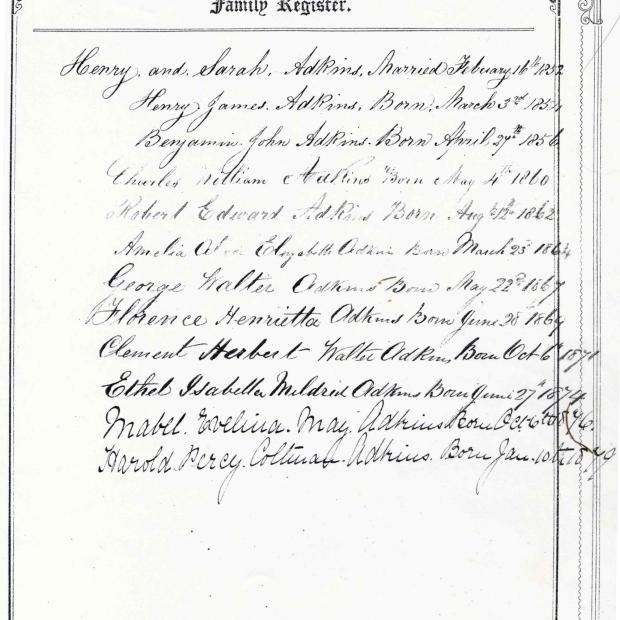 Family Register.
Henry and Sarah, Adkins, Married February 16th 1852
Henry James. Adkins, Born, March 3rd 1854
Benjamin John Adkins. Born April 27th 1856
Charles William Adkins Born May 4th 1860
Robert Edward Adkins Born Augt 12th 1862
Amelia Elizabeth Adkins Born March 25 1864
George Walter Adkins Born May 22nd 1867
Florence Henrietta Adkins Born June 28th 1869
Clement Herbert Walter Adkins Born Oct 6th 1871
Ethel Isabella Mildred Adkins Born June 27th 1874
Mabel. Evelina. May. Adkins Born Oct. 6th 1876.
Harold. Percy. Coltman. Adkins. Born Jan. 10th 1879